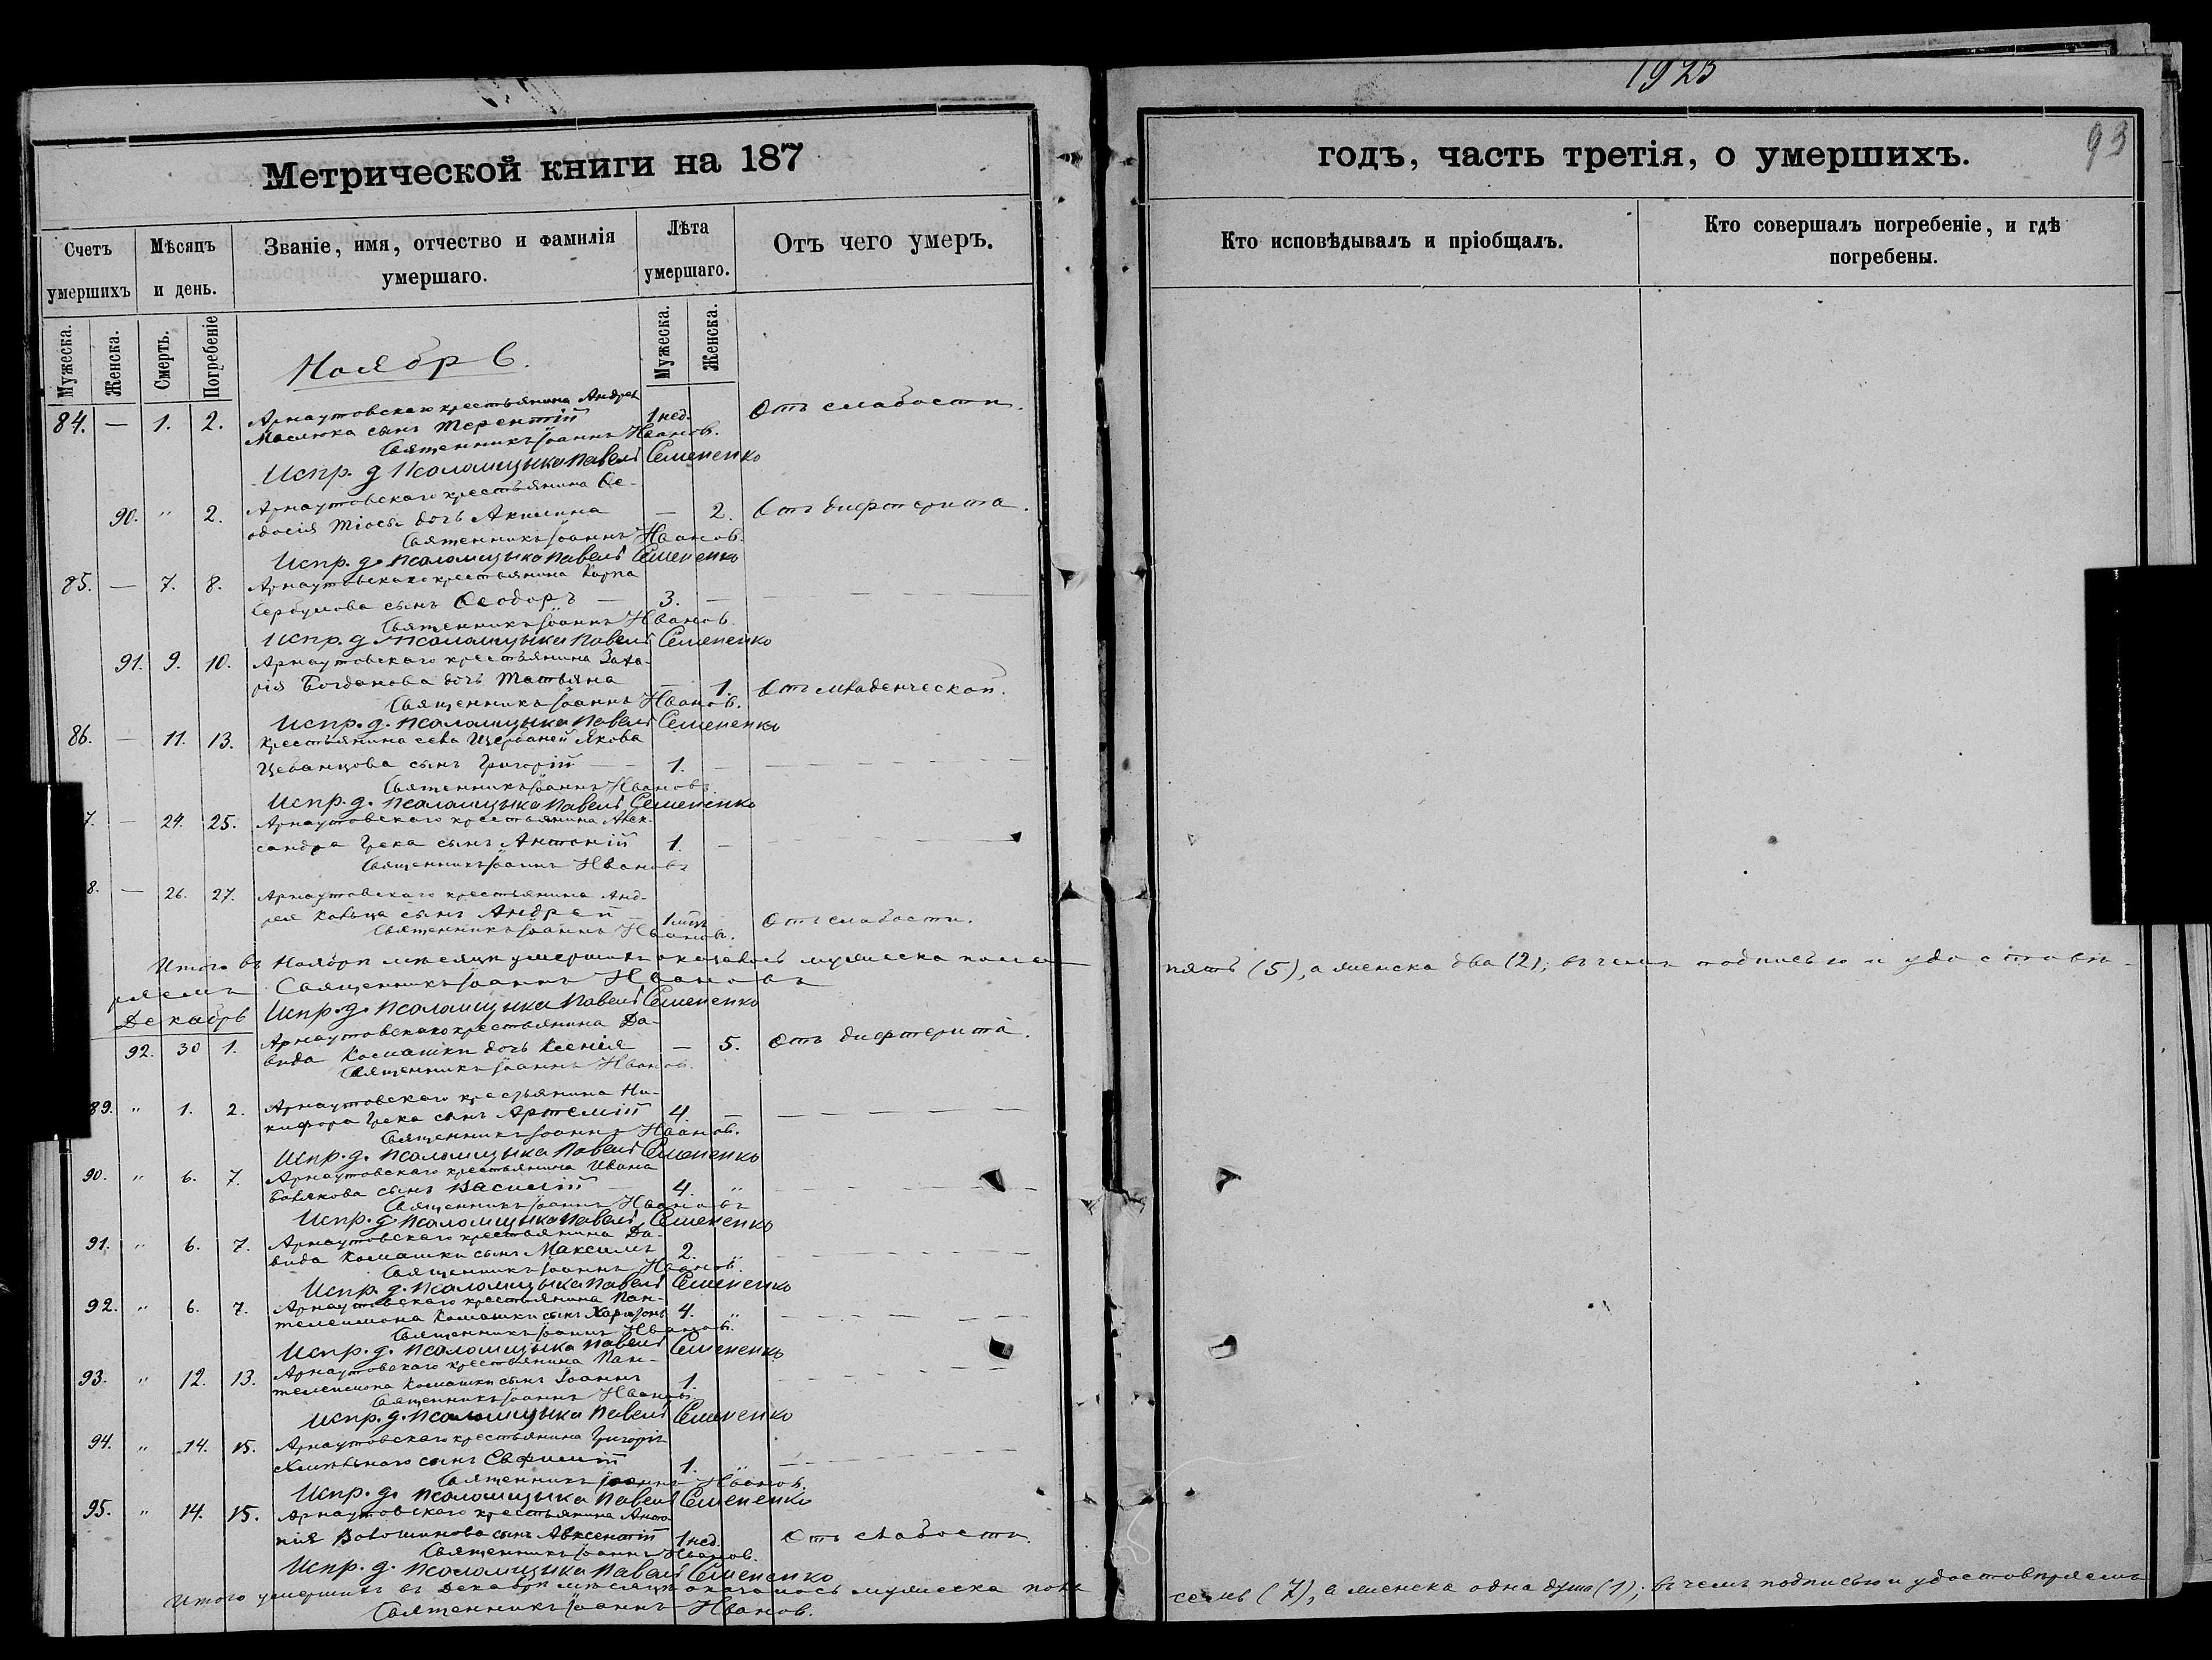 1925
93
Метрической книги на 187
годъ, часть третія, о умершихъ.
Счетъ умершихъ
Мѣсяцъ и день.
Званіе, имя, отчество и фамилія умершаго.
Лѣта умершаго.
Отъ чего умеръ.
Кто исповѣдывалъ и пріобщалъ.
Кто совершалъ погребеніе, и гдѣ погребены.
Мужеска. Женска. Смерть. Погребеніе
Мужеска. Женска.
Ноябрь.
84. — 1. 2. Арнаутовскаго крестьянина Андрея
Маслюка сынъ Терентій 1 нед. Отъ слабости.
Священникъ Іоаннъ Ивановъ.
Испр. д. Псаломщыка Павелъ Семененко
90. " 2. Арнаутовскаго крестьянина Ѳе-
одосія дочь Акилина — 2. Отъ дифтерита.
Священникъ Іоаннъ Ивановъ.
Испр. д. Псаломщыка Павелъ Семененко
85. — 7. 8. Арнаутовскаго крестьянина Карпа
сынъ Ѳеодоръ — 3. —
Священникъ Іоаннъ Ивановъ.
Испр. д. Псаломщыка Павелъ Семененко
91. 9. 10. Арнаутовскаго крестьянина Заха-
рія Богданова дочь Татьяна — 1. Отъ младенческой.
Священникъ Іоаннъ Ивановъ.
Испр. д. Псаломщыка Павелъ Семененко
86. — 11. 13. Крестьянина села Щербаней Якова
сынъ Григорій — 1. —
Священникъ Іоаннъ Ивановъ.
Испр. д. Псаломщыка Павелъ Семененко
7. — 24. 25. Арнаутовскаго крестьянина Алек-
сандра Грека сынъ Антоній 1. —
Священникъ Іоаннъ Ивановъ
8. — 26. 27. Арнаутовскаго крестьянина Анд-
рея сынъ Андрей — 1 мѣц. Отъ слабости.
Священникъ Іоаннъ Ивановъ.
Итого въ Ноябрѣ мѣсяцѣ умершихъ оказалось мужеска пола пять (5), а женска два (2); въ чемъ подписью и удостовѣ-
ряемъ Священникъ Іоаннъ Ивановъ
Испр. д. Псаломщыка Павелъ Семененко
Декабрь
92. 30 1. Арнаутовскаго крестьянина Да-
вида Комашки дочь Ксенія — 5. Отъ дифтерита.
Священникъ Іоаннъ Ивановъ.
89. " 1. 2. Арнаутовскаго крестьянина Ни-
кифора Грека сынъ Артемій 4. —
Священникъ Іоаннъ Ивановъ.
Испр. д. Псаломщыка Павелъ Семененко
90. " 6. 7. Арнаутовскаго крестьянина Ивана
сынъ Василій 4. "
Священникъ Іоаннъ Ивановъ
Испр. д. Псаломщыка Павелъ Семененко
91. " 6. 7. Арнаутовскаго крестьянина Да-
вида Комашки сынъ Максимъ 2. "
Священникъ Іоаннъ Ивановъ.
Испр. д. Псаломщыка Павелъ Семененко
92. " 6. 7. Арнаутовскаго крестьянина Пан-
телеимона Комашки сынъ Харитонъ 4. "
Священникъ Іоаннъ Ивановъ.
Испр. д. Псаломщыка Павелъ Семененко
93. " 12. 13. Арнаутовскаго крестьянина Пан-
телеимона Комашки сынъ Іоаннъ 1.
Священникъ Іоаннъ Ивановъ.
Испр. д. Псаломщыка Павелъ Семененко
94. " 14. 15. Арнаутовскаго крестьянина Григорія
сынъ Евфимій 1. "
Священникъ Іоаннъ Ивановъ.
Испр. д. Псаломщыка Павелъ Семененко
95. " 14. 15. Арнаутовскаго крестьянина Анто
нія Волошинова сынъ Авксентій 1 нед. Отъ слабости.
Священникъ Іоаннъ Ивановъ.
Испр. д. Псаломщыка Павелъ Семененко
Итого умершихъ въ Декабрѣ мѣсяцѣ оказалось мужеска пола семь (7), а женска одна душа (1); въ чемъ подписью и удостовѣряемъ
Священникъ Іоаннъ Ивановъ.